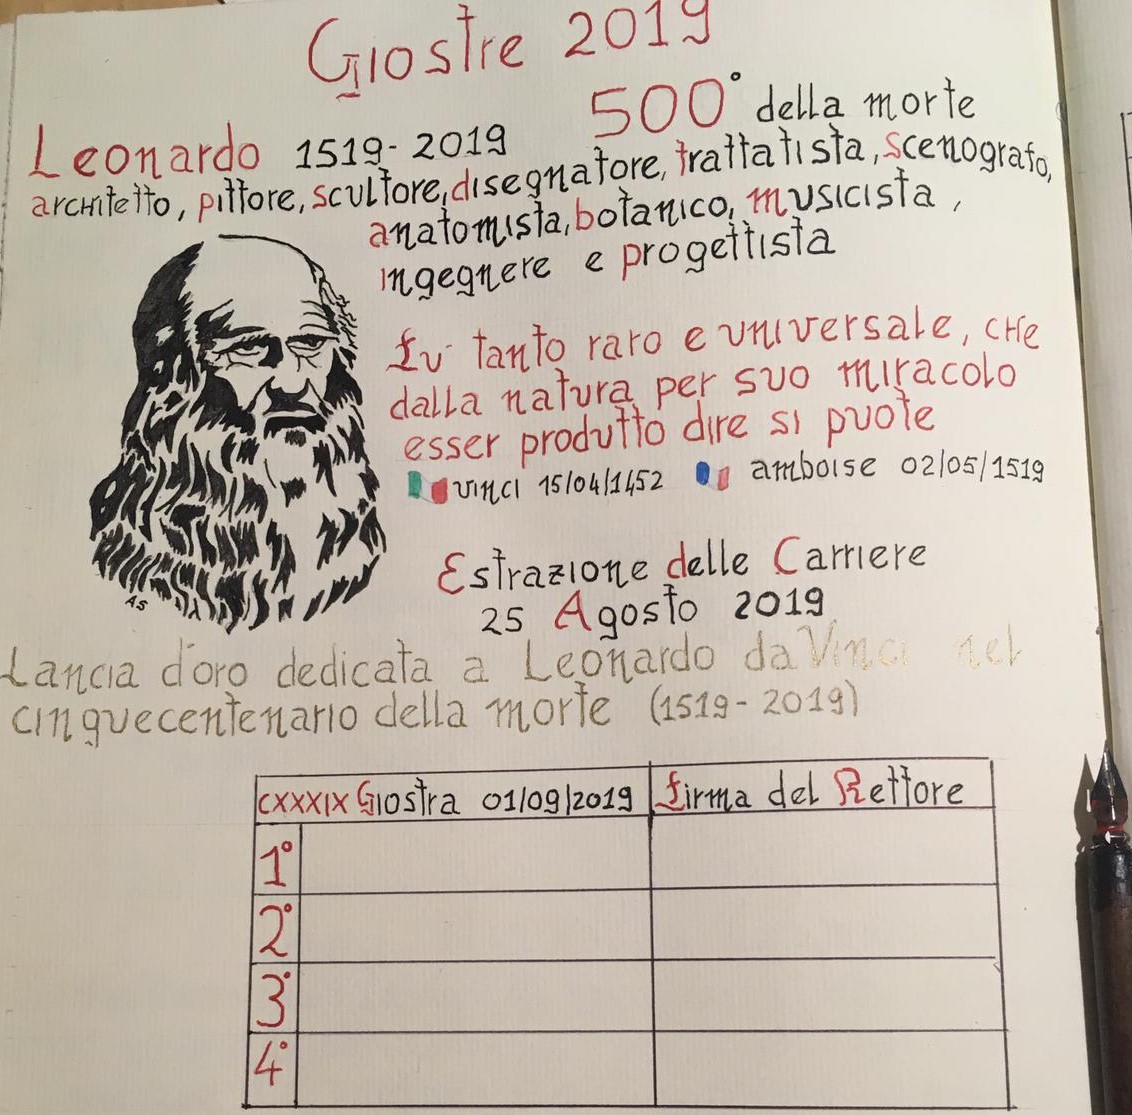 Giostre 2019
500° della morte
Leonardo 1519-2019
architetto, pittore, scultore, disegnatore, trattatista, scenografo,
anatomista, botanico, musicista,
ingegnere e progettista
Fu tanto raro e universale, che
dalla natura per suo miracolo
esser produtto dire si puote
vinci 15/04/1452 amboise 02/05/1519
Estrazione delle Carriere
25 Agosto 2019
Lancia d'oro dedicata a Leonardo da Vinci nel
cinquecentenario della morte (1519-2019)
CXXXIX Giostra 01/09/2019 Firma del Rettore
1°
2°
3°
4°
AS